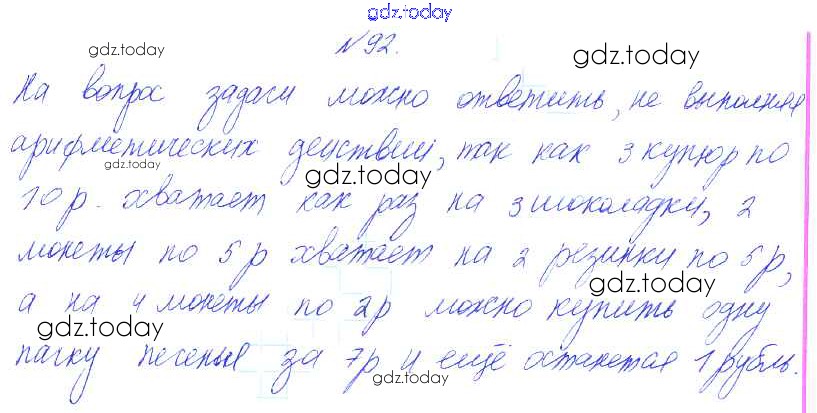 gdz.today
№92.
gdz.today gdz.today
На вопрос задачи можно ответить, не выполняя
арифметических действий, так как 3 купюр по
gdz.today gdz.today
10 р. хватает как раз на 3 шоколадки, 2
gdz.today
монеты по 5 р хватает на 2 резинки по 5 р,
gdz.today
а на 4 монеты по 2р можно купить одну
gdz.today
пачку печенья за 7р и ещё останется 1 рубль.
gdz.today